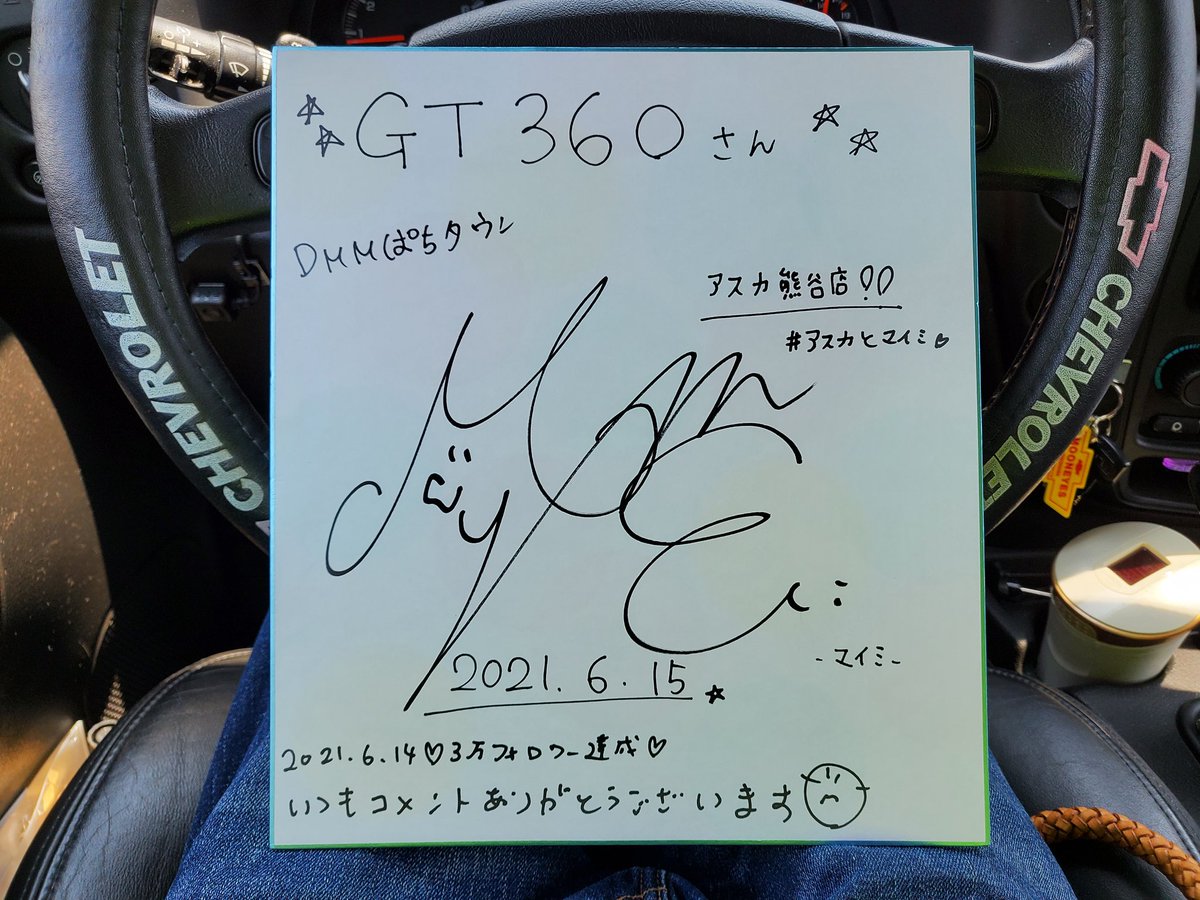 ☆☆GT360さん☆☆
DMMぱちタウン
アスカ熊谷店!!
#アスカとマイミ♡
-マイミ-
2021.6.15☆
2021.6.14♡3万フォロワー達成♡
いつもコメントありがとうございます
CHEVROLET
CHEVROLET
CHEVROLET
MOONEYES